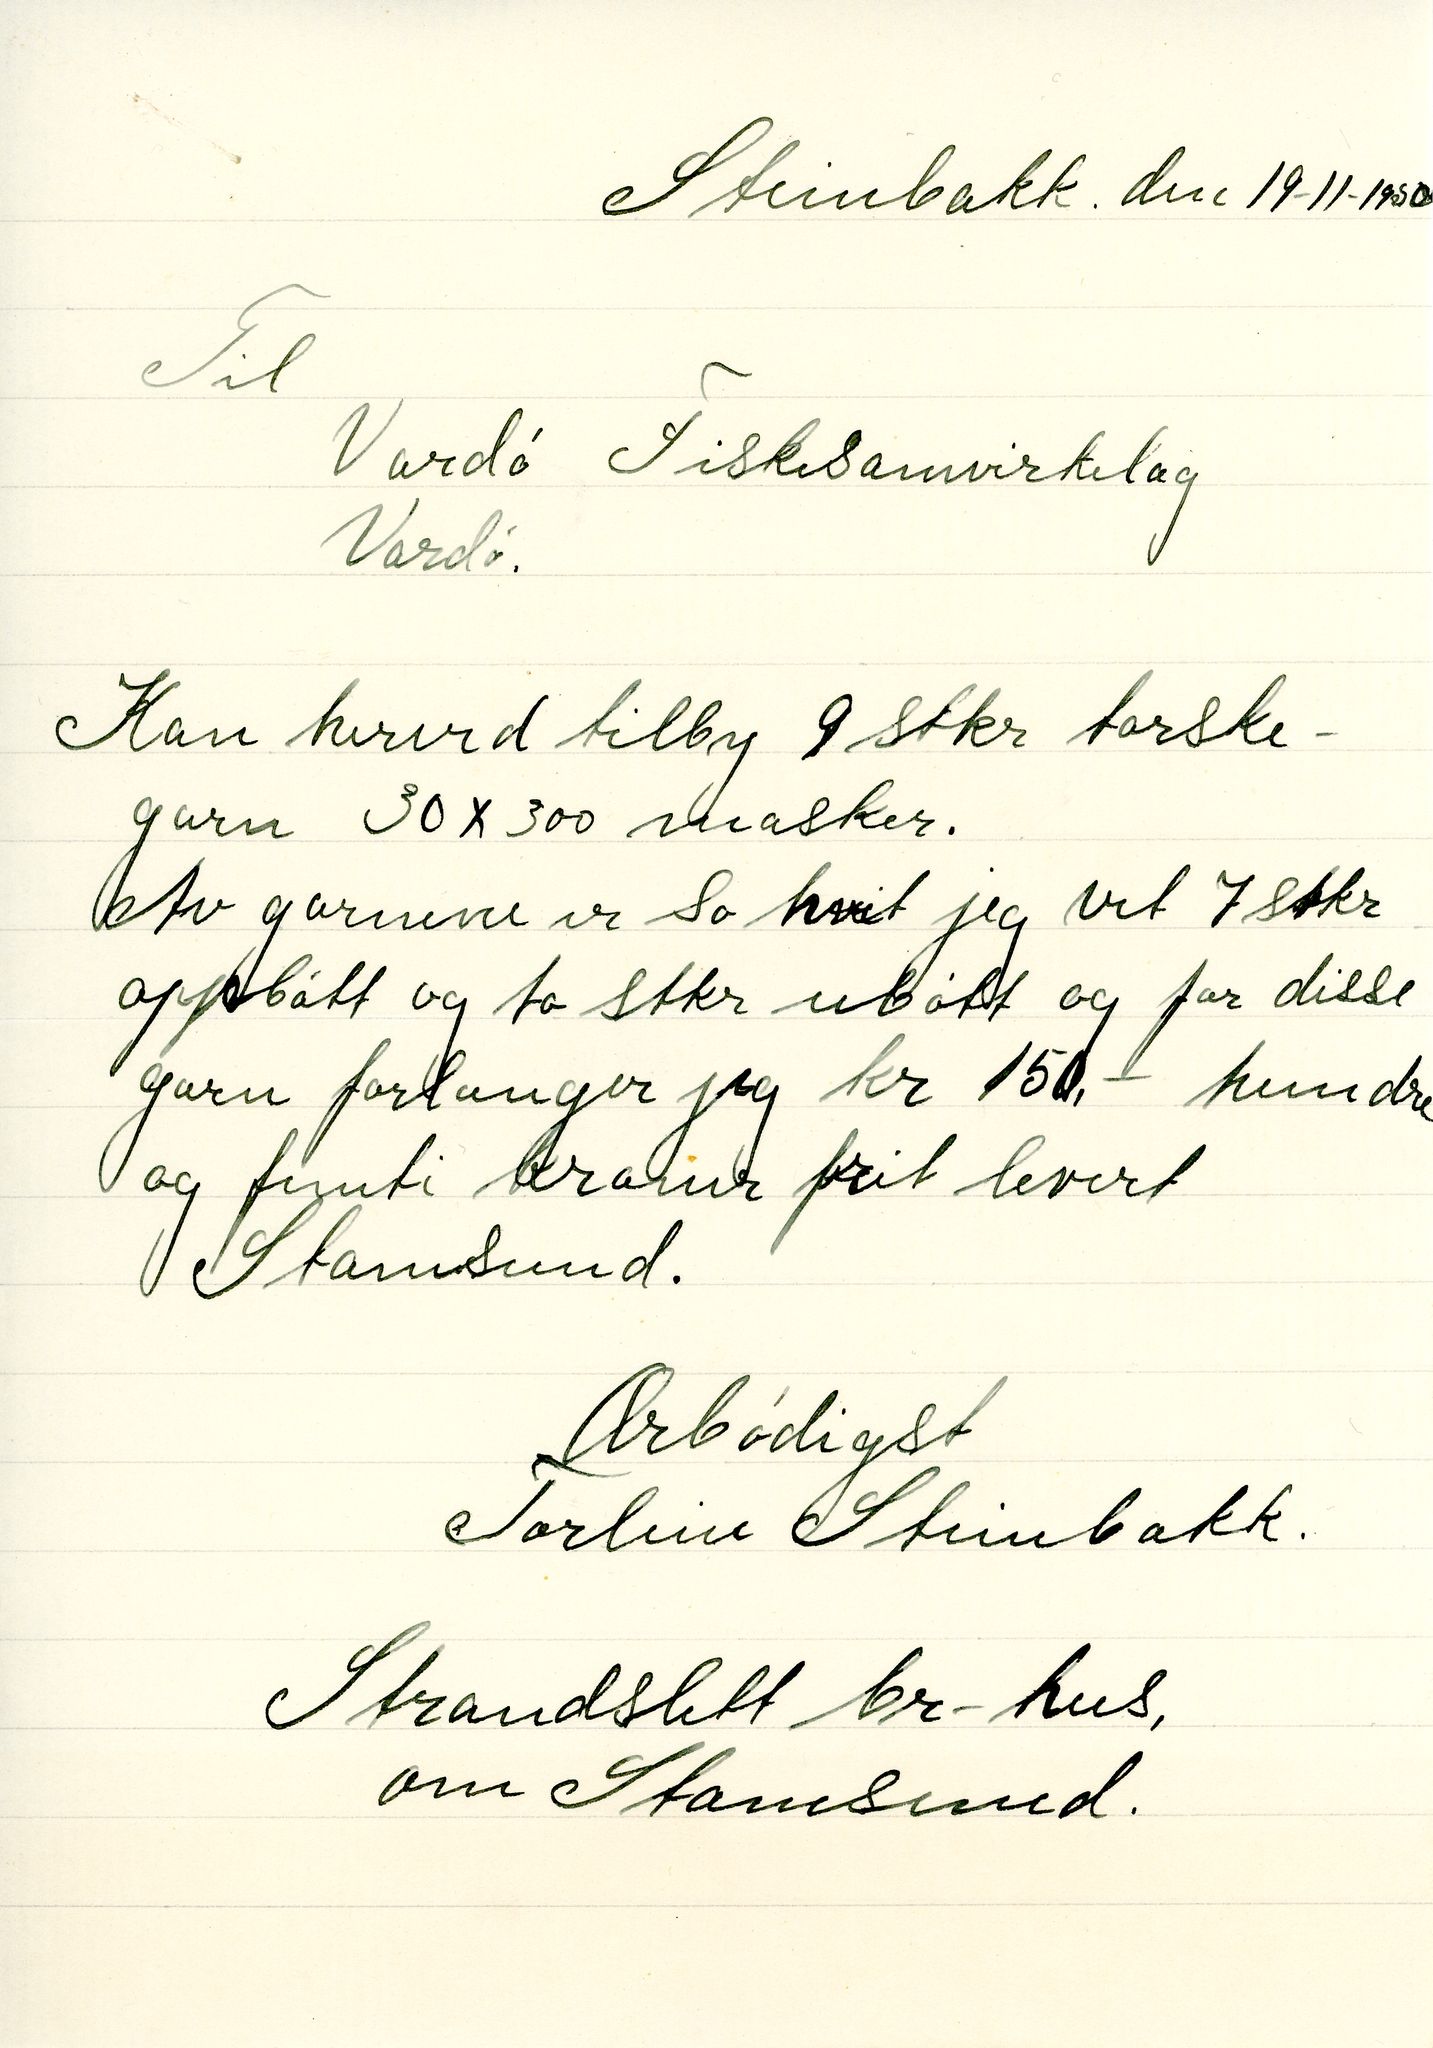 Steinbakk. den 19-11-1950
Til
Vardø Fiskesamvirkelag
Vardø.
Kan herved tilby 9 stkr torske-
garn 30 x 300 masker.
Av garnene er so hvit jeg vet 7 stkr
oppbøtt og to stkr ubøtt og for disse
garn forlanger jeg kr 150,- hundre
og femti kroner frit levert
Stamsund.
Ærbødigst
Torleiv Steinbakk.
Strandslett br-hus,
om Stamsund.